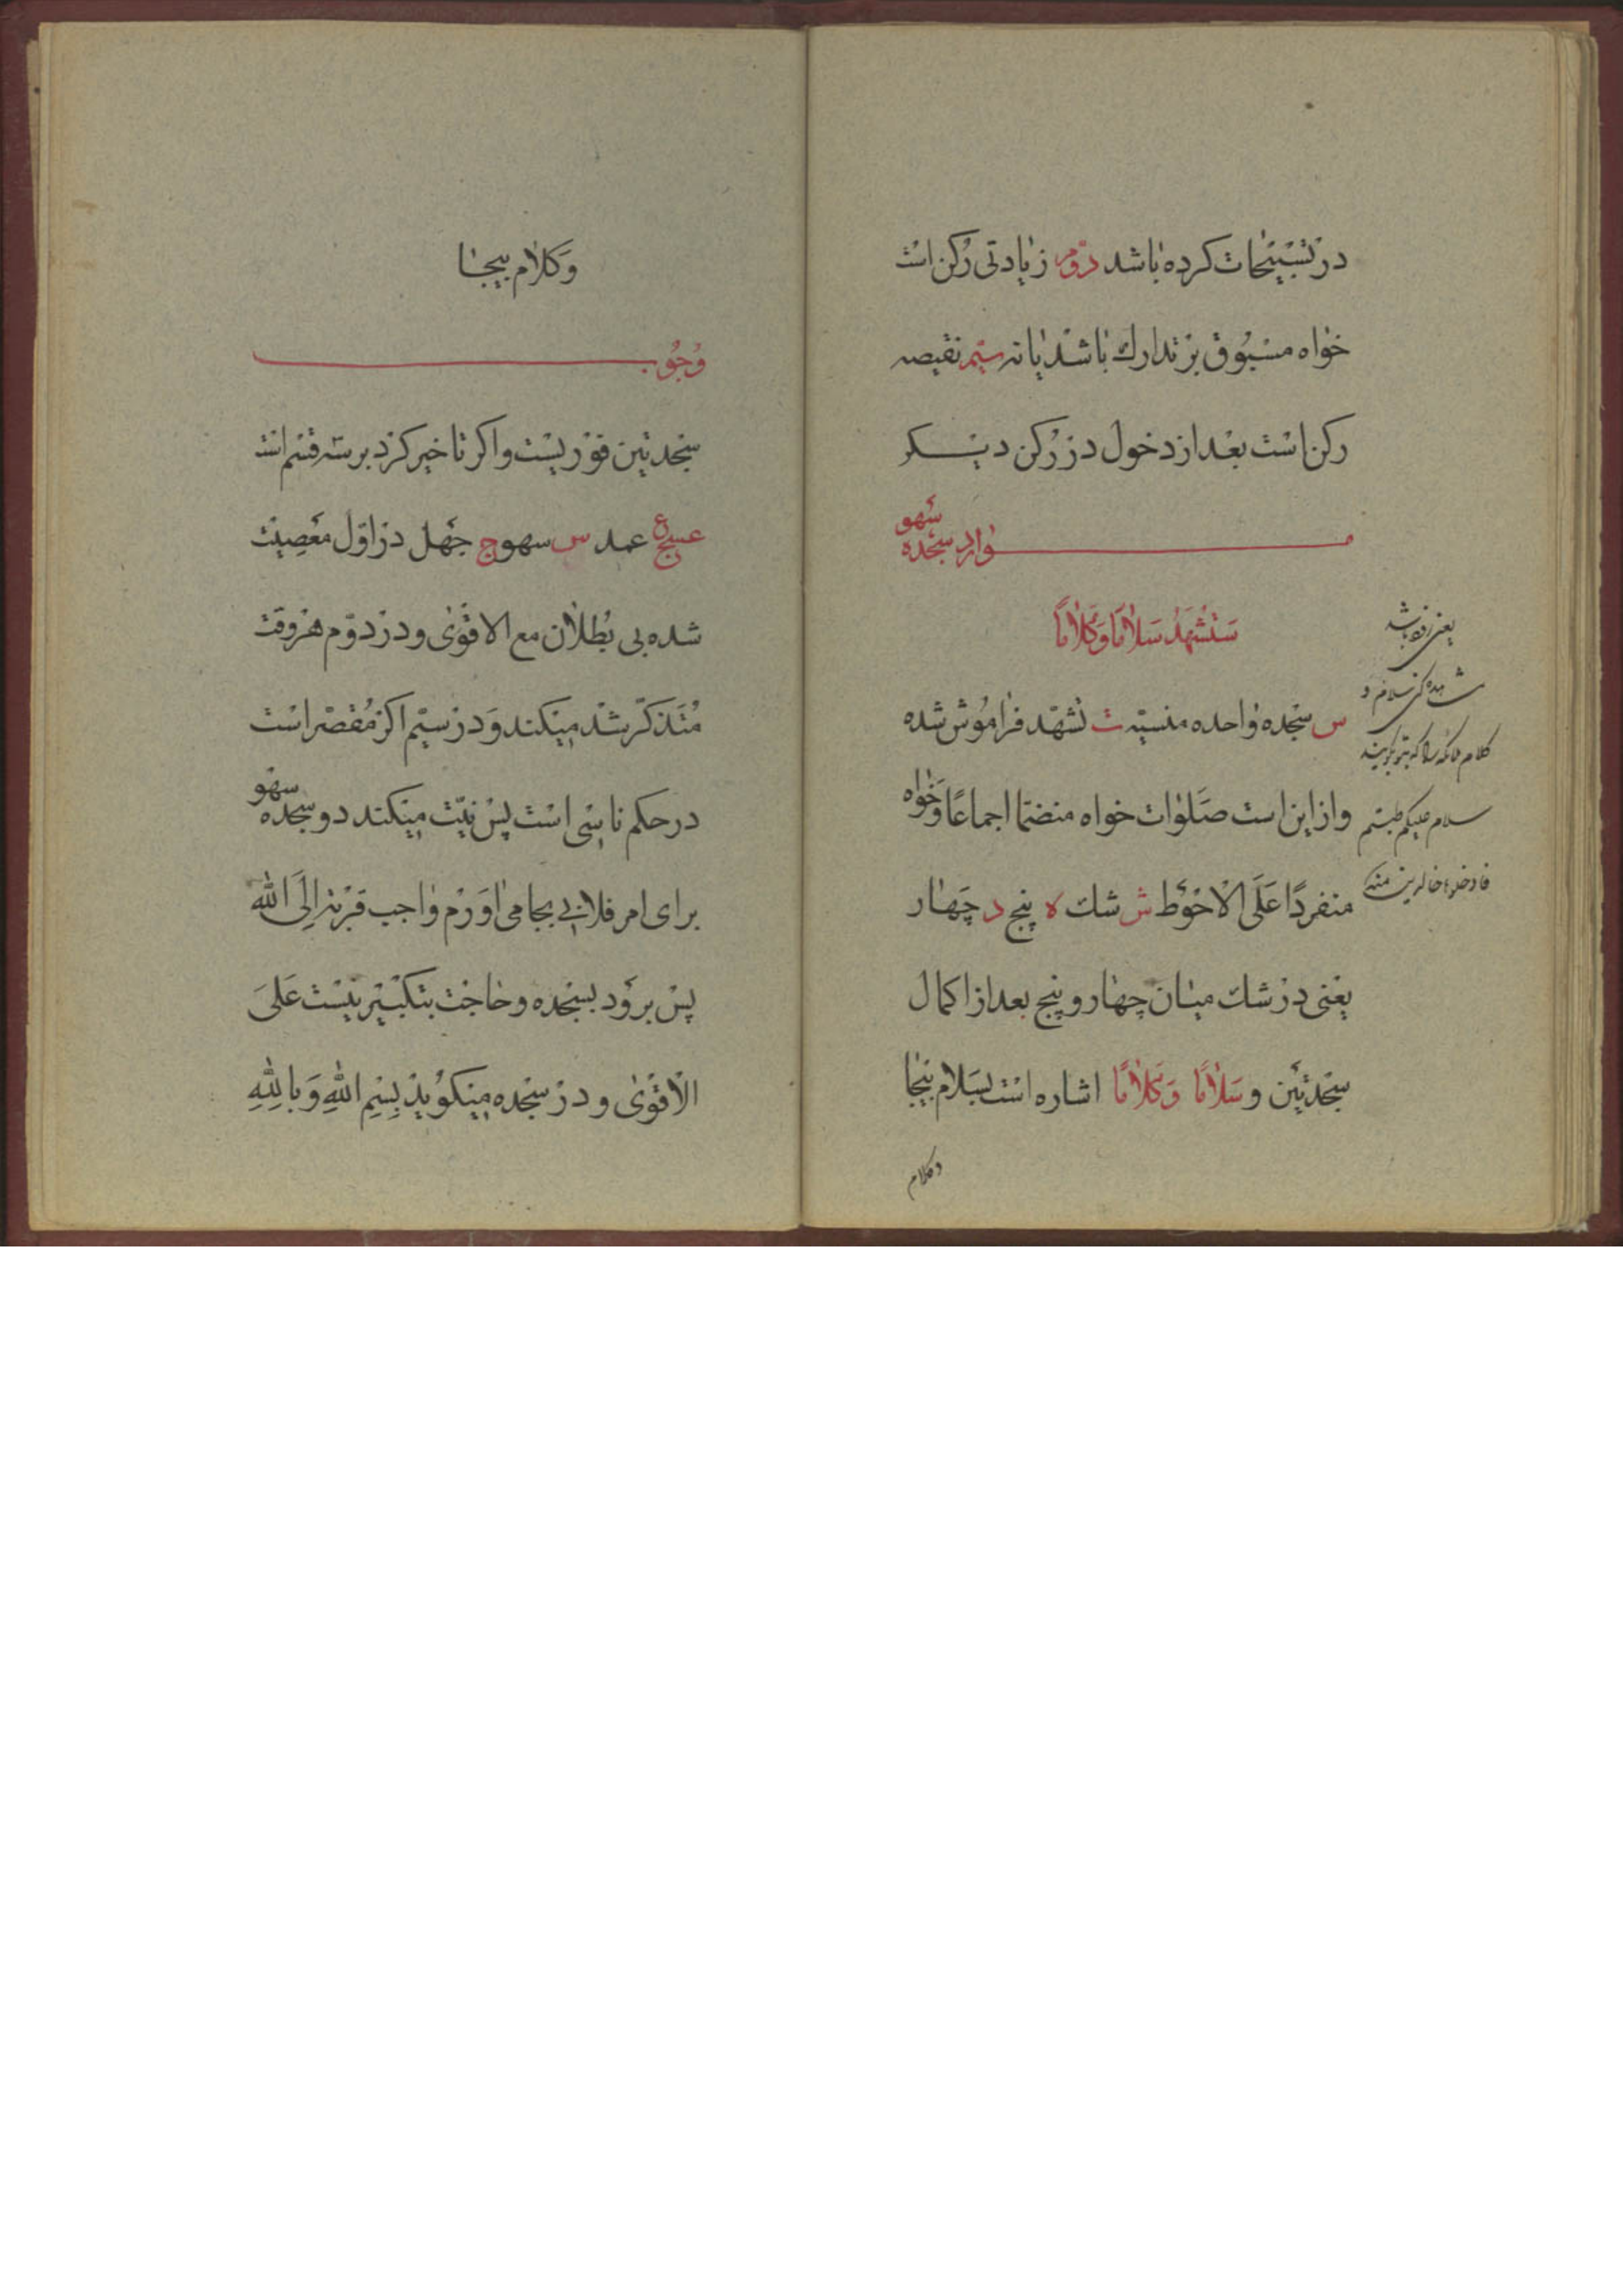 در تسبیحات کرده باشد دوم زیادتی رکن است
خواه مسبوق بر تدارک باشد یا نه سیم نقیصه
رکن است بعد از دخول در رکن دیگر
موارد سجده سهو
ستشهد سلاما وکلاما
س سجده واحده منسیه ت تشهد فراموش شده
و از این است صلوات خواه منضما اجماعا و خواه
منفردا علی الاحوط ش شک ه پنج د چهار
یعنی در شک میان چهار و پنج بعد از اکمال
سجدتین و سلاما وکلاما اشاره است بسلام بیجا
وکلام
یعنی زود باشد
کلام ملائکه را که بتو بگویند
سلام علیکم طبتم
فادخلوها خالدین منه
وکلام بیجا
وجوب
سجدتین فوریست و اکر تاخیر کرد بر سه قسم است
عسج ع عمد س سهو ج جهل در اول معصیت
شده بی بطلان مع الاقوی و در دوم هر وقت
متذکر شد میکند و در سیم اکر مقصر است
در حکم ناسی است پس نیت میکند دو سجده سهو
برای امر فلانی بجا می اورم واجب قربة الی الله
پس برود بسجده و حاجت بتکبیر نیست علی
الاقوی و در سجده میکوید بسم الله و بالله